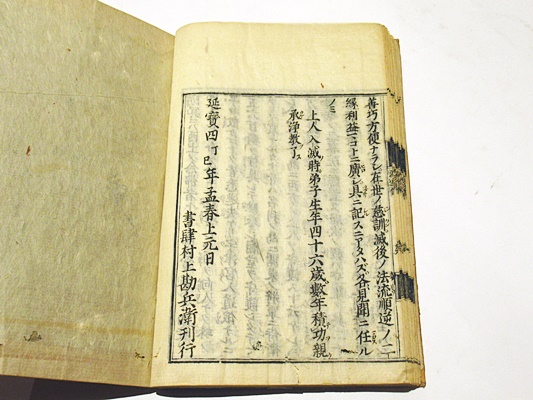 善巧方便ナラン在世ノ慈訓滅後ノ法流順逆ノ二
縁利益マコトニ廣シ具ニ記スニアタハズ各見聞ニ任ル
ノミ
上人入滅時弟子生年四十六歳數年積功親
承浄教了
延寶四丁巳年孟春上元日
書肆村上勘兵衛刊行